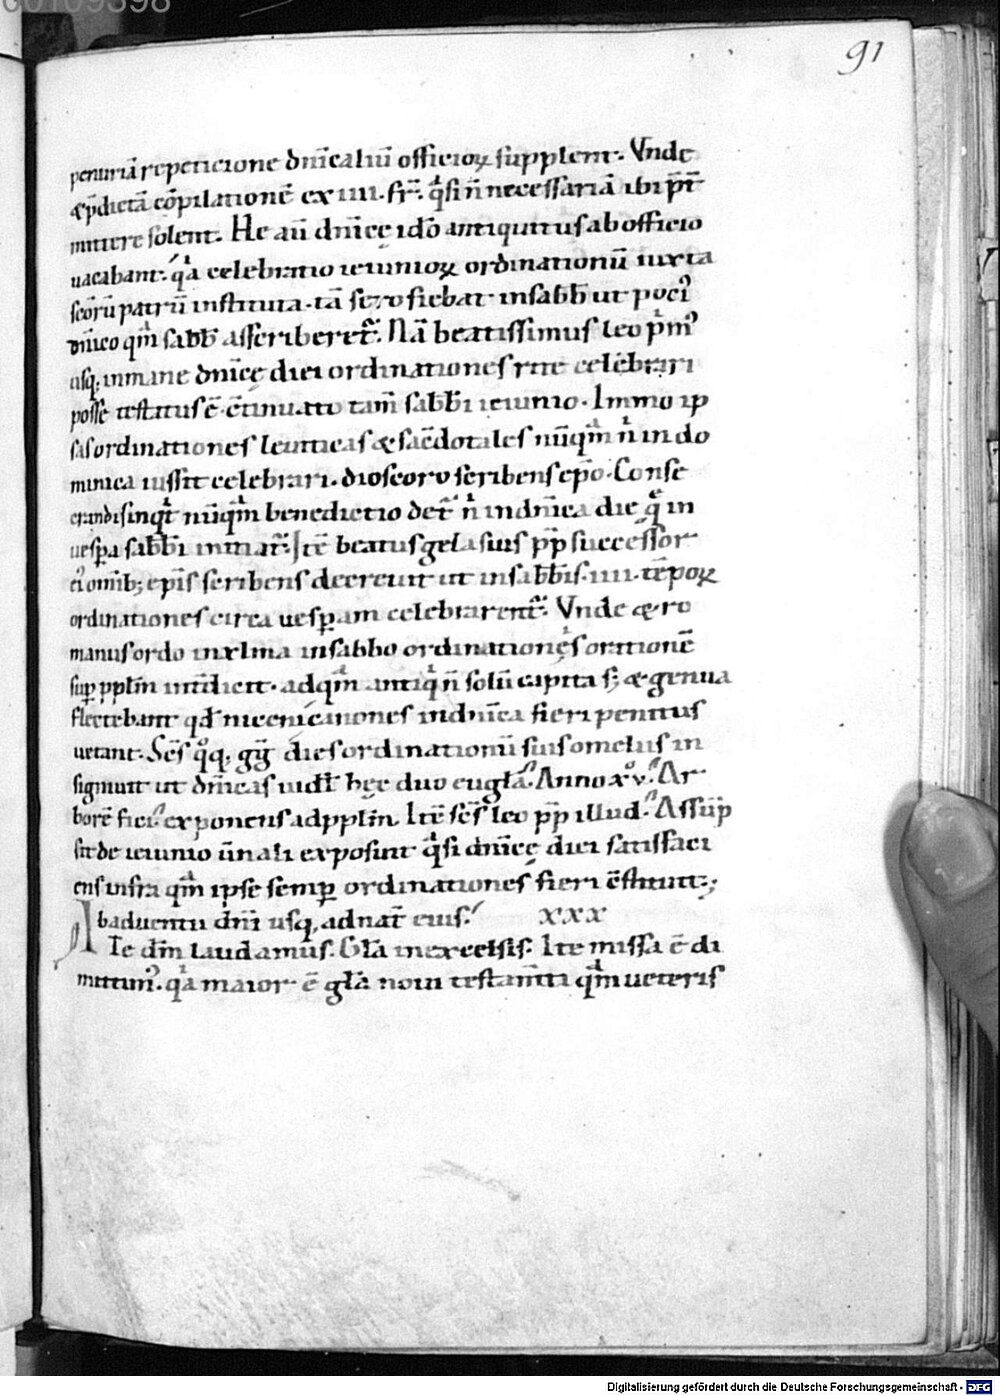 00109398
91
penuriā repeticione dn̄icaliū officioꝝ supplent. Vnde
& p̄dictā cōpilationē ex iiii. fr̄. q̄si n̄ necessariā ibi p̄t
mittere solent. He aū dn̄icę idō antiquitus ab officio
uacabant. q̄a celebratio ieiunioꝝ ordinationū iuxta
sc̄orū patrū instituta. tā sero fiebat in sabb̄ ut poci᾿
dn̄ico qm̄ sabb̄ asscriberet᷑. Nā beatissimus leo pm᾿
usq; in mane dn̄icę diei ordinationes rite celebrari
posse testatus ē. c̄tinuato tam̄ sabb̄i ieiunio. Immo ip
sas ordinationes leuiticas & sac̄dotales nūqm̄ n̄ in do
minica iussit celebrari. dioscoro scribens ep̄o. Conse
crandis inqt̄ nūqm̄ benedictio det᷑ n̄ in dn̄ica die q̄ in
uesp̄a sabb̄i initiat᷑. Itē beatus gelasius pp̄ successor
ei᾿ omīb; ep̄is scribens decreuit ut in sabb̄is. iiii. tēpoꝝ
ordinationes circa uesperam celebrarent᷑. Vnde & ro
manus ordo in xl̄ma in sabbo ordinationis orationē
sup pplm̄ int̄dicit. ad qm̄ antiqi n̄ solū capita s; & genua
flectebant qd̄ niceni canones in dn̄ica fieri penitus
uetant. Sc̄s q̊q; gg̅ dies ordinationū suis omeliis in
signiuit ut dn̄icas uidl̄ hęc duo eugl̄a. Anno xv̊. Ar
borē fici. exponens ad pplm̄. Itē sc̄s leo pp̄ illud. Assūp
sit de ieiunio ūnali exposuit q̄si dn̄icę diei satisfaci
ens infra qm̄ ipse semp ordinationes fieri c̄stituit.;
Ab aduentu dn̄i usq; ad nat̄ eius. xxx
Te dm̄ laudamus. Gl̄a in excelsis. Ite missa ē di
mittim᾿. q̄a maior ē gl̄a noui testam̄ti qm̄ ueteris
Digitalisierung gefördert durch die Deutsche Forschungsgemeinschaft - DFG